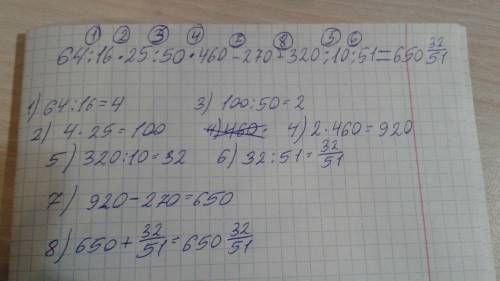 ① ② ③ ④ ⑦ ⑧ ⑤ ⑥
64:16•25:50•460-270+320:10:51=650 32/51
1) 64:16=4 3) 100:50=2
2) 4•25=100 4) 460• 4) 2•460=920
5) 320:10=32 6) 32:51=32/51
7) 920-270=650
8) 650+32/51=650 32/51